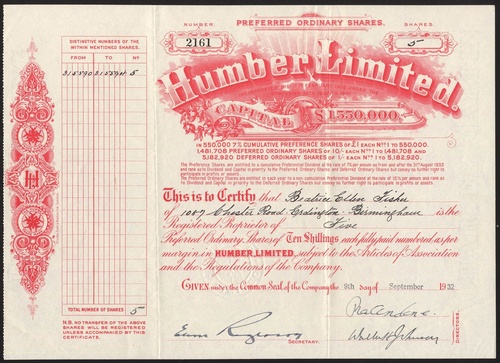 DISTINCTIVE NUMBERS OF THE
WITHIN MENTIONED SHARES.
FROM TO Nº
315590 315594 5
TOTAL NUMBER OF SHARES 5
N.B. NO TRANSFER OF THE ABOVE
SHARES WILL BE REGISTERED
UNLESS ACCOMPANIED BY THIS
CERTIFICATE.
NUMBER PREFERRED ORDINARY SHARES. SHARES
2161 5
Humber Limited.
CAPITAL £1,550,000.
IN 550,000 7% CUMULATIVE PREFERENCE SHARES OF £1 EACH Nos 1 TO 550,000.
1,481,708 PREFERRED ORDINARY SHARES OF 10/- EACH Nos 1 TO 1,481,708 AND
5,182,920 DEFERRED ORDINARY SHARES OF 1/- EACH Nos 1 TO 5,182,920.
The Preference Shares are entitled to a Cumulative Preferential Dividend at the rate of 7% per annum as from and after the 31st August 1932
and rank as to Dividend and Capital in priority to the Preferred Ordinary Shares and Deferred Ordinary Shares but convey no further right to
participate in profits or assets.
The Preferred Ordinary Shares are entitled in each year to a non-cumulative Preferential Dividend at the rate of 10% per annum and rank as
to Dividend and Capital in priority to the Deferred Ordinary Shares but convey no further right to participate in profits or assets.
This is to Certify that Beatrice Ellen Fisher
of 1007 Chester Road Erdington Birmingham is the
Registered Proprietor of Five
Preferred Ordinary Shares of Ten Shillings each fully paid numbered as per
margin in HUMBER, LIMITED, subject to the Articles of Association
and the Regulations of the Company.
GIVEN under the Common Seal of the Company the 9th day of September 1932
SECRETARY.
DIRECTORS.